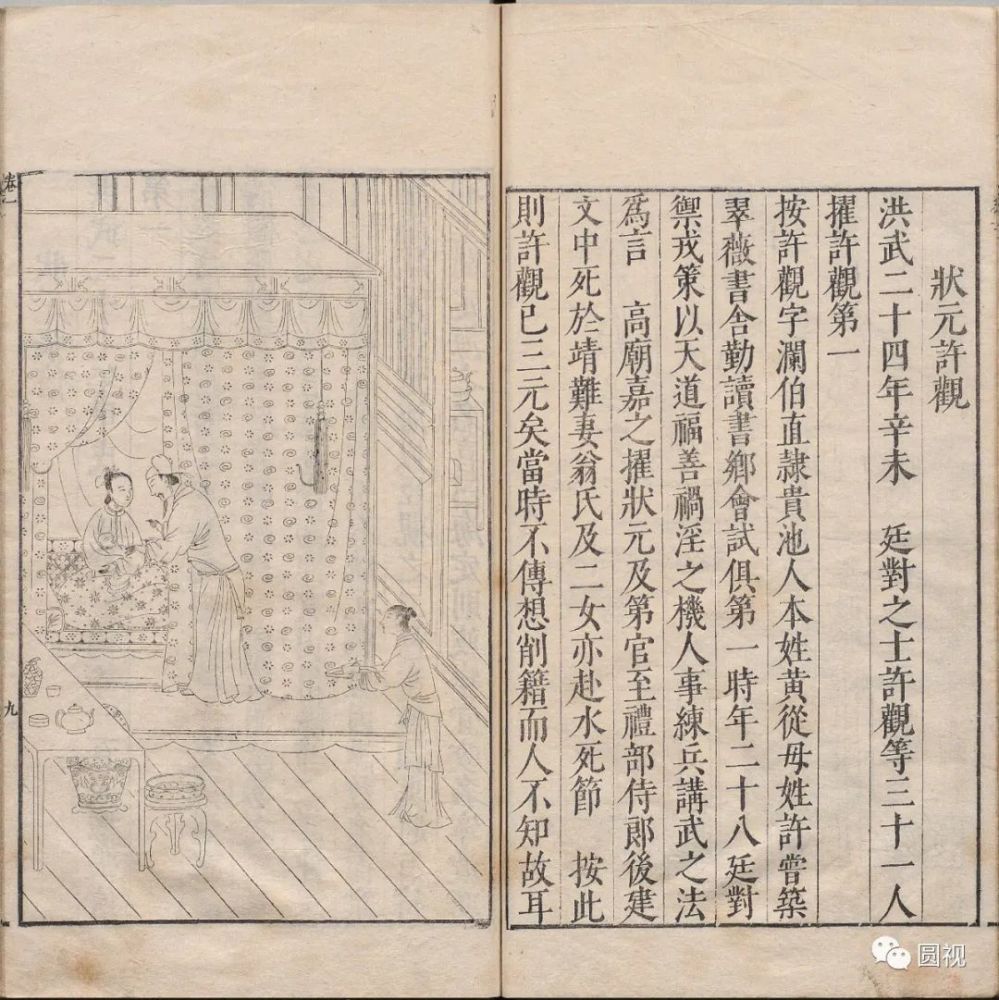 狀元許觀
洪武二十四年辛未　廷對之士許觀等三十一人
擢許觀第一
按許觀字瀾伯直隷貴池人本姓黃從母姓許嘗築
翠薇書舍勤讀書鄉會試俱第一時年二十八廷對
禦戎策以天道福善禍淫之機人事練兵講武之法
爲言　高廟嘉之擢狀元及第官至禮部侍郎後建
文中死於靖難妻翁氏及二女亦赴水死節　按此
則許觀已三元矣當時不傳想削籍而人不知故耳
卷一
九
圆视